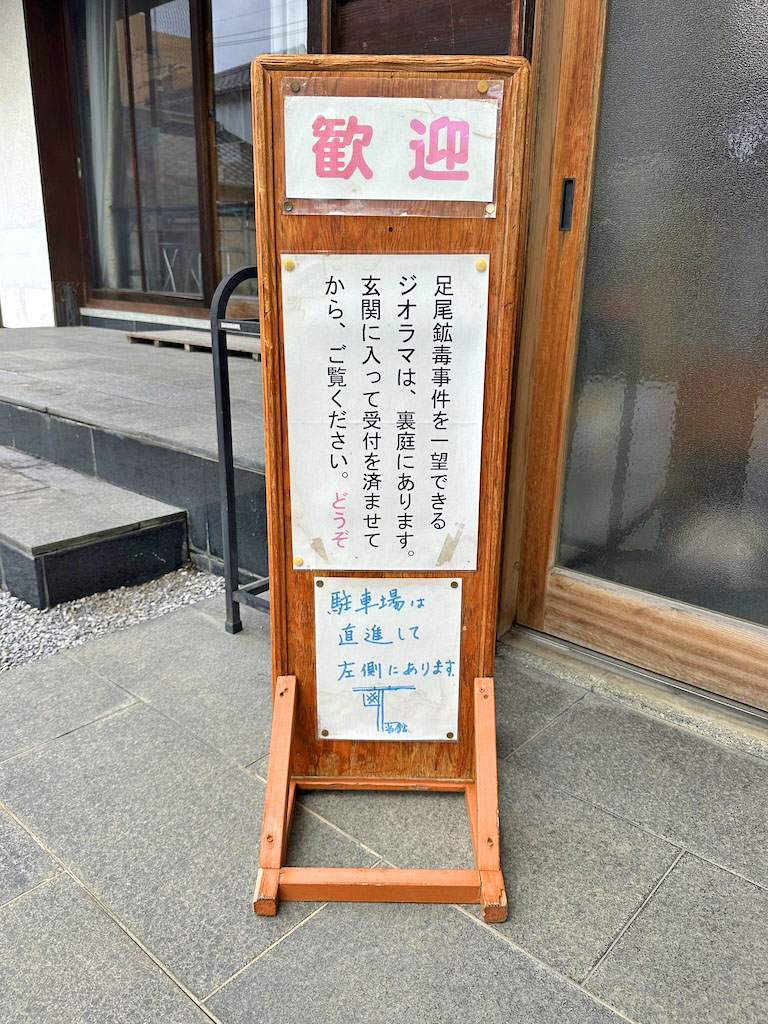 歓迎
足尾鉱毒事件を一望できる
ジオラマは、裏庭にあります。
玄関に入って受付を済ませて
から、ご覧ください。どうぞ
駐車場は
直進して
左側にあります